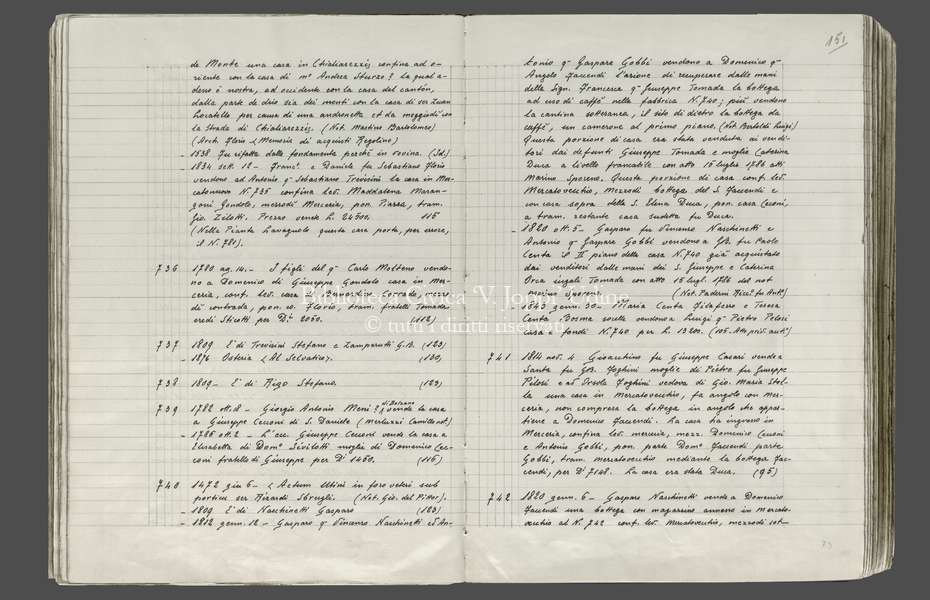 de Monte una casa in Chialiarezzis, confina ad o-
riente con la casa di mº Andrea Sturzo? la qual a-
desso è nostra, ad occidente con la casa del cantón,
dalla parte de drio sia dei monti con la casa di ser Zuan
Locatello per causa di una andronetta et da meggiodì con
la Strada di Chialiarezzis. (Not. Martino Bartolomeo)
(Arch. Florio - Memorie di acquisti Regolino)
- 1538 Fu rifatta dalle fondamenta perchè in rovina. (Id.)
- 1834 sett. 18 - Franc. e Daniele fu Sebastiano Florio
vendono ad Antonio q. Sebastiano Trevisini la casa in Mer-
catonuovo N. 735 confina lev. Maddalena Maran-
goni Gondolo, mezzodì Merceria, pon. Piazza, tram.
Gio. Zilotti. Prezzo venete L. 24500. 115
(Nella Pianta Lavagnolo questa casa porta, per errore,
il N. 781).
736 1780 ag. 14. - I figli del q. Carlo Molteno vendo-
no a Domenico di Giuseppe Gondolo casa in Mer-
ceria, conf. lev. casa
di contrada, pon. co. Florio, tram. fratelli Tomada
eredi Sticotti per D.ti 2050. (112)
737 1809 E' di Trevisini Stefano e Zamparutti G.B. (123)
- 1876 Osteria "Al Selvatico". (130)
738 1809 - E' di Rigo Stefano. (123)
739 1782 ott. 18 - Giorgio Antonio Meni? di Bolzano vende la casa
a Giuseppe Cecconi di S. Daniele (Merluzzi Camillo not.)
- 1786 ott. 2 - L'ecc. Giuseppe Cecconi vende la casa a
Elisabetta di Dom. Sivilotti moglie di Domenico Cec-
coni fratello di Giuseppe per D.ti 1450. (116)
740 1472 giu 6 - "Actum Utini in foro veteri sub
porticu ser Rizardi Sbrugli. (Not. Gio. del Pittor).
- 1809 E' di Naschinetti Gasparo (123)
- 1812 genn. 12 - Gasparo q. Vincenzo Naschinetti ed An-
151
tonio q. Gaspare Gobbi vendono a Domenico q.
Angelo Faccendi l'azione di recuperare dalle mani
della Sign. Francesca q. Giuseppe Tomada la bottega
ad uso di caffè nella fabbrica N. 740; più vendono
la cantina sotteranea, il sito di dietro la bottega da
caffè, un camerone al primo piano. (Not. Bertoldi Luigi)
Questa porzione di casa era stata venduta ai vendi-
tori dai defunti Giuseppe Tomada e moglie Caterina
Duca a livello francabile con atto 15 luglio 1786 atti
Marino Sporeno. Questa porzione di casa conf. lev.
Mercatovecchio, mezzodì bottega del S. Faccendi e
con casa sopra della S. Elena Duca, pon. casa Cecconi,
a tram. restante casa sudetta fu Duca.
- 1820 ott. 5 - Gasparo fu Vincenzo Naschinetti e
Antonio q. Gaspare Gobbi vendono a GB. fu Paolo
Centa il II piano della casa N. 740 già acquistato
dai venditori dalle mani dei S. Giuseppe e Caterina
Orca jugali Tomada con atto 15 lugl. 1786 del not.
Marino Sporeno. (Not. Paderni Ricc. fu Ant.)
1843 genn. 30 - Maria Centa Zilaferro e Teresa
Centa Bosma sorelle vendono a Luigi q. Pietro Pelosi
casa e fondi N. 740 per L. 13200. (105 - Atti priv. aut.)
741 1814 nov. 4 Gioachino fu Giuseppe Casari vende a
Santa fu GB. Foghini moglie di Pietro fu Giuseppe
Pilosi e ad Orsola Foghini vedova di Gio. Maria Stel-
la una casa in Mercatovecchio, fa angolo con Mer-
ceria, non compresa la bottega in angolo che appar-
tiene a Domenico Faccendi. La casa ha ingresso in
Merceria, confina lev. merceria, mezz. Domenico Cecconi
e Antonio Gobbi, pon. parte Dom. Faccendi parte
Gobbi, tram. mercatovecchio mediante la bottega Fac-
cendi, per D.ti 7148. La casa era stata Duca. (95)
742 1820 genn. 6 - Gaspare Naschinetti vende a Domenico
Faccendi una bottega con magazzino annesso in Mercato-
vecchio al N. 742 conf. lev. Mercatovecchio, mezzodì sot-
73
Biblioteca Civica 'V. Joppi' Udine
© tutti i diritti riservati